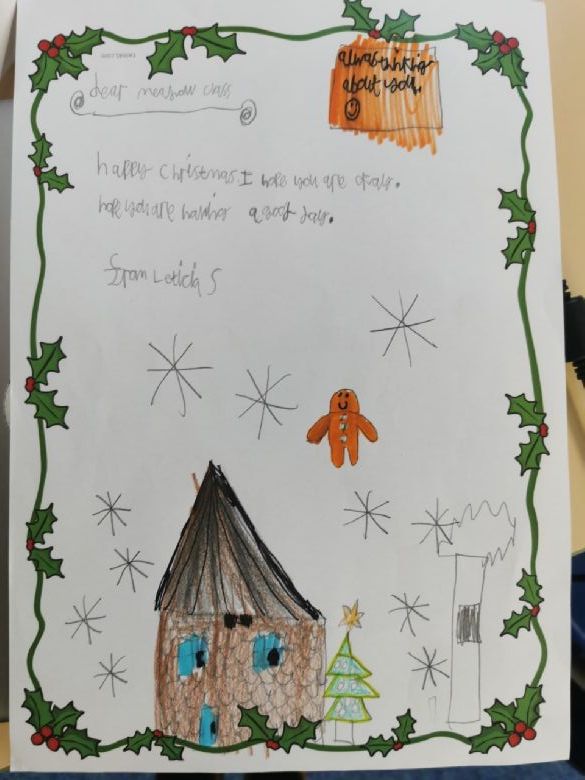 always thinking
about you.
dear meadow class
happy Christmas. I hope you are okay.
hope you are having a good day.
from Leticia S